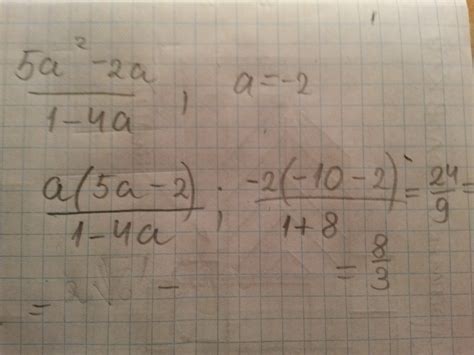 5a² - 2a / 1 - 4a , a = -2
a(5a - 2) / 1 - 4a ; -2(-10 - 2) / 1 + 8 = 24 / 9 =
= 8 / 3
=